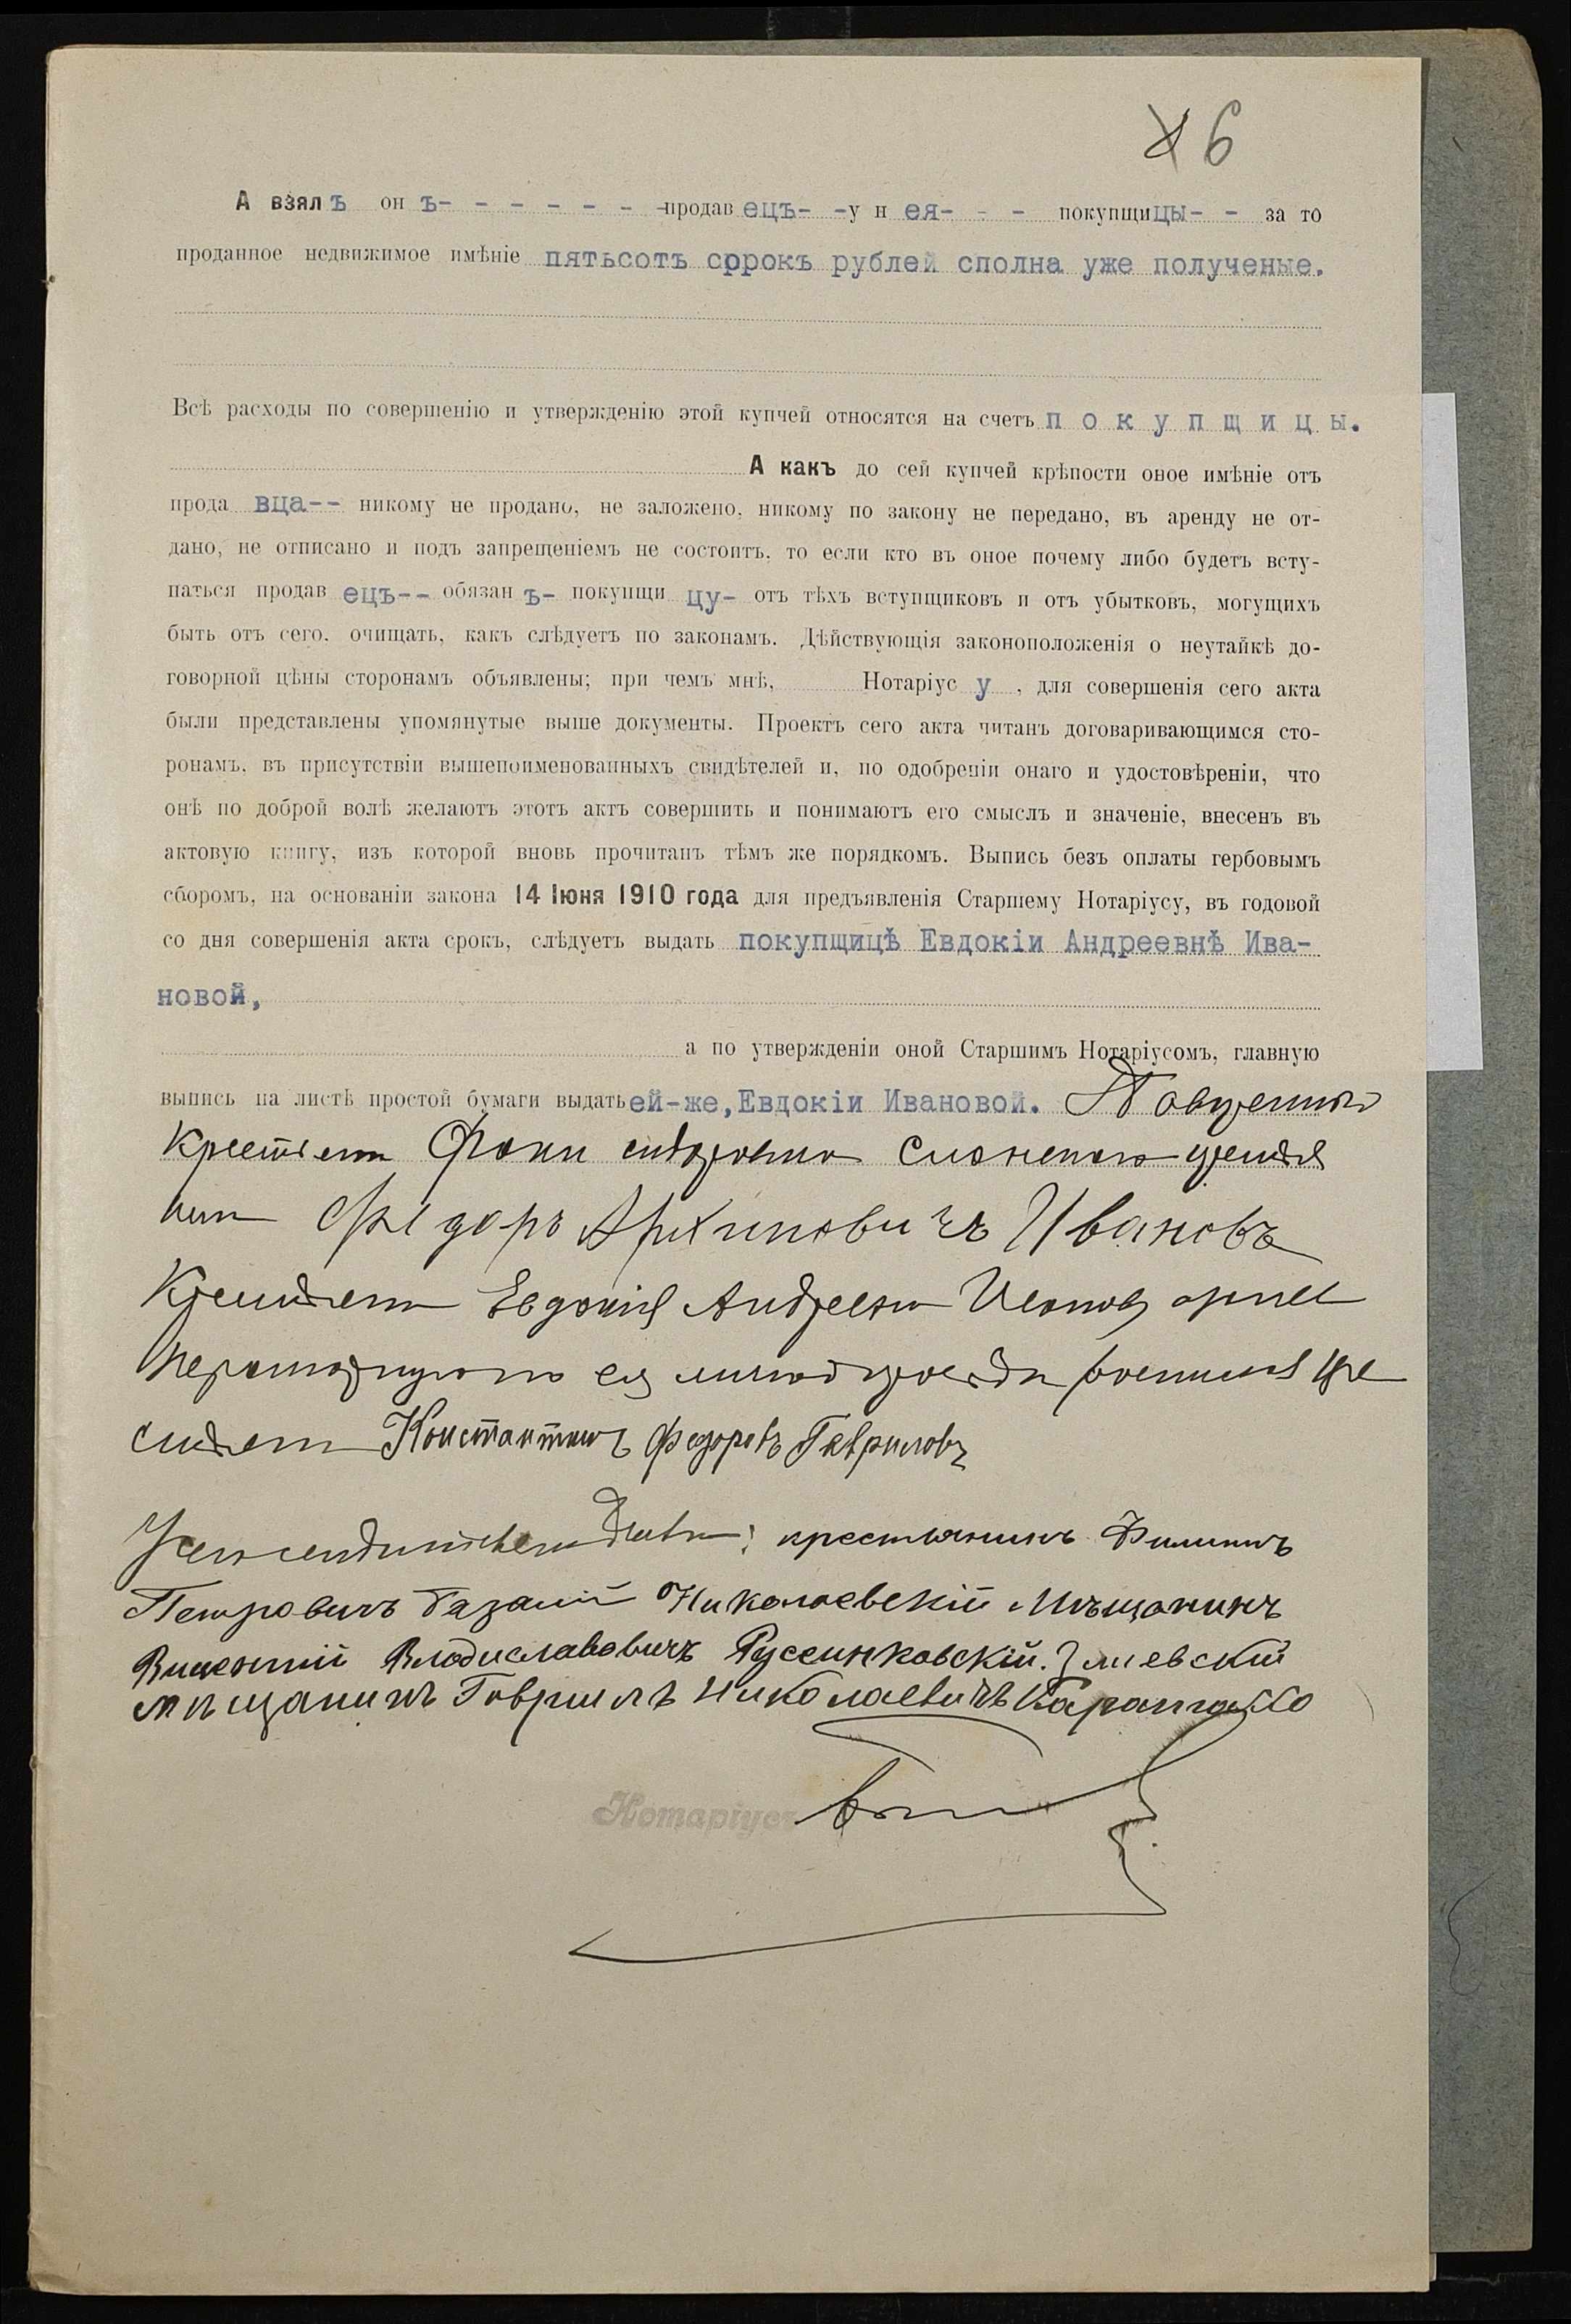 6
А взялъ онъ- - - - - - - -продавецъ- -у нея- - - покупщицы- - за то
проданное недвижимое имѣніе пятьсотъ сорокъ рублей сполна уже полученые.
Всѣ расходы по совершенію и утвержденію этой купчей относятся на счетъ покупщицы.
А какъ до сей купчей крѣпости оное имѣніе отъ
продавца-- никому не продано, не заложено, никому по закону не передано, въ аренду не от-
дано, не отписано и подъ запрещеніемъ не состоитъ, то если кто въ оное почему либо будетъ всту-
паться продавецъ-- обязанъ- покупщицу- отъ тѣхъ вступщиковъ и отъ убытковъ, могущихъ
быть отъ сего, очищать, какъ слѣдуетъ по законамъ. Дѣйствующія законоположенія о неутайкѣ до-
говорной цѣны сторонамъ объявлены; при чемъ мнѣ, Нотаріусу, для совершенія сего акта
были представлены упомянутые выше документы. Проектъ сего акта читанъ договаривающимся сто-
ронамъ, въ присутствіи вышепоименованныхъ свидѣтелей и, по одобреніи онаго и удостовѣреніи, что
онѣ по доброй волѣ желаютъ этотъ актъ совершить и понимаютъ его смыслъ и значеніе, внесенъ въ
актовую книгу, изъ которой вновь прочитанъ тѣмъ же порядкомъ. Выпись безъ оплаты гербовымъ
сборомъ, на основаніи закона 14 Іюня 1910 года для предъявленія Старшему Нотаріусу, въ годовой
со дня совершенія акта срокъ, слѣдуетъ выдать покупщицѣ Евдокіи Андреевнѣ Ива-
новой,
а по утвержденіи оной Старшимъ Нотаріусомъ, главную
выпись на листѣ простой бумаги выдать ей-же, Евдокіи Ивановой.
Федоръ Архиповичъ Ивановъ
Евдокія
ея
Константинъ Федоровъ Гавриловъ
крестьянинъ Филиппъ
Петровичъ Николаевскій Мѣщанинъ
Викентій Владиславовичъ Русеинковскій. Змиевскій
мѣщанинъ Гавріилъ Николаевичъ
Нотаріусъ